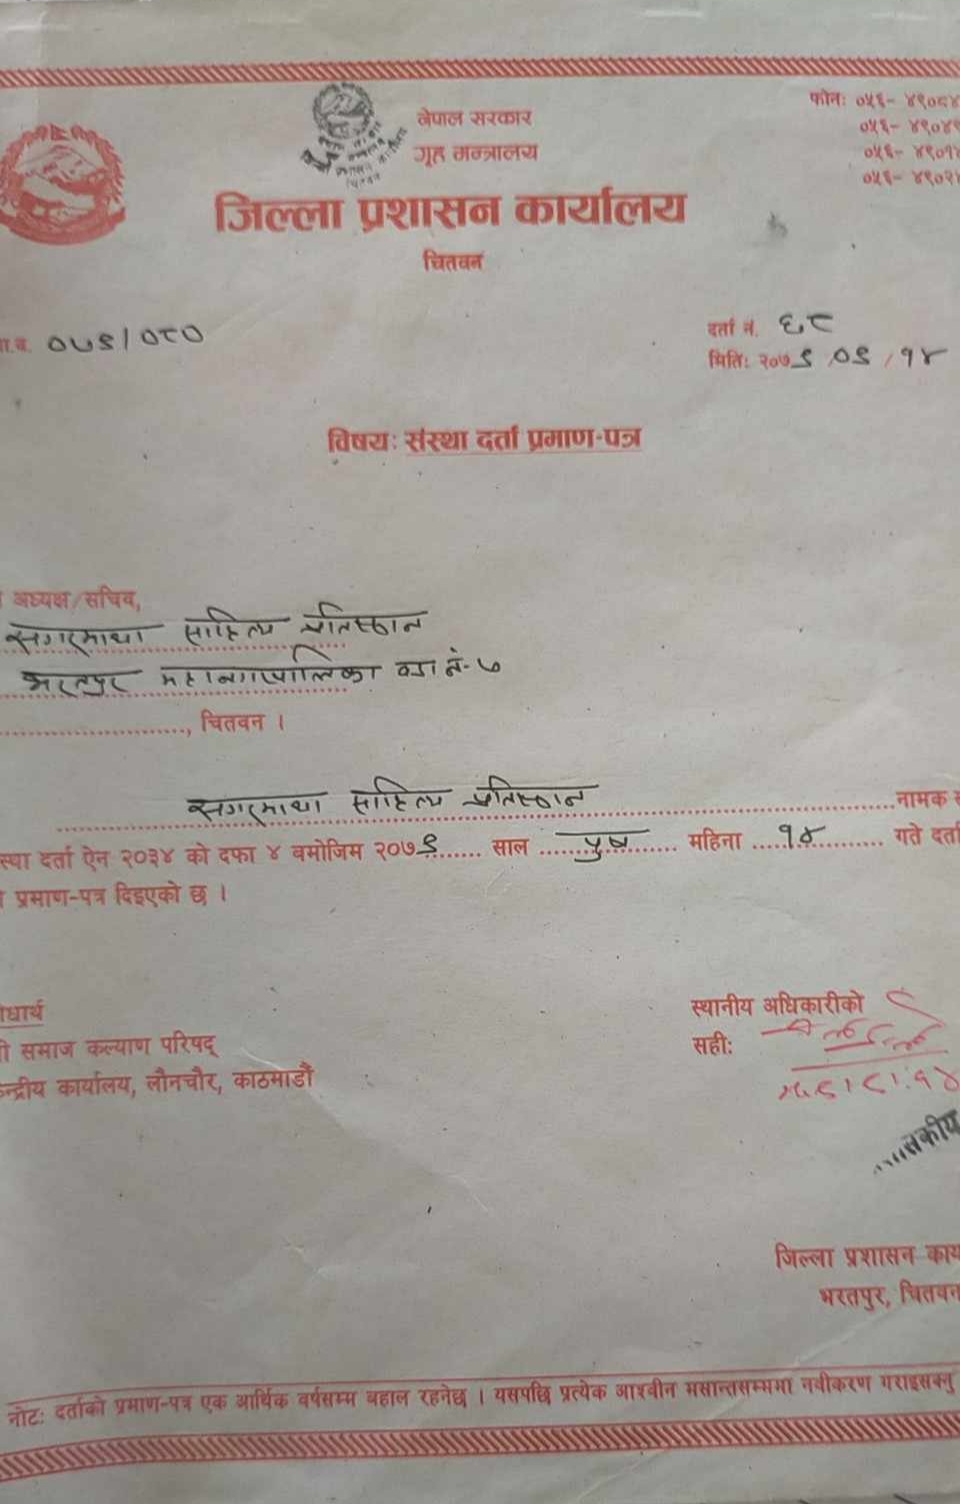 नेपाल सरकार
गृह मन्त्रालय
जिल्ला प्रशासन कार्यालय
चितवन
फोन: ०५६- ४९०८४
०५६- ४९०४९
०५६- ४९०१४
०५६- ४९०२४
०७९/०८०
दर्ता नं. ६८
मिति: २०७९/०९/१४
विषय: संस्था दर्ता प्रमाण-पत्र
अध्यक्ष/सचिव,
सगरमाथा साहित्य प्रतिष्ठान
भरतपुर महानगरपालिका वडा नं- ७
, चितवन ।
सगरमाथा साहित्य प्रतिष्ठान नामक
स्था दर्ता ऐन २०३४ को दफा ४ वमोजिम २०७९ साल पुष महिना १४ गते दर्ता
प्रमाण-पत्र दिइएको छ ।
धार्थ
समाज कल्याण परिषद्
न्द्रीय कार्यालय, लैनचौर, काठमाडौं
स्थानीय अधिकारीको
सही:
जिल्ला प्रशासन कार्य
भरतपुर, चितवन
नोट: दर्ताको प्रमाण-पत्र एक आर्थिक वर्षसम्म बहाल रहनेछ । यसपछि प्रत्येक आश्वीन मसान्तसम्ममा नवीकरण गराइसक्नु